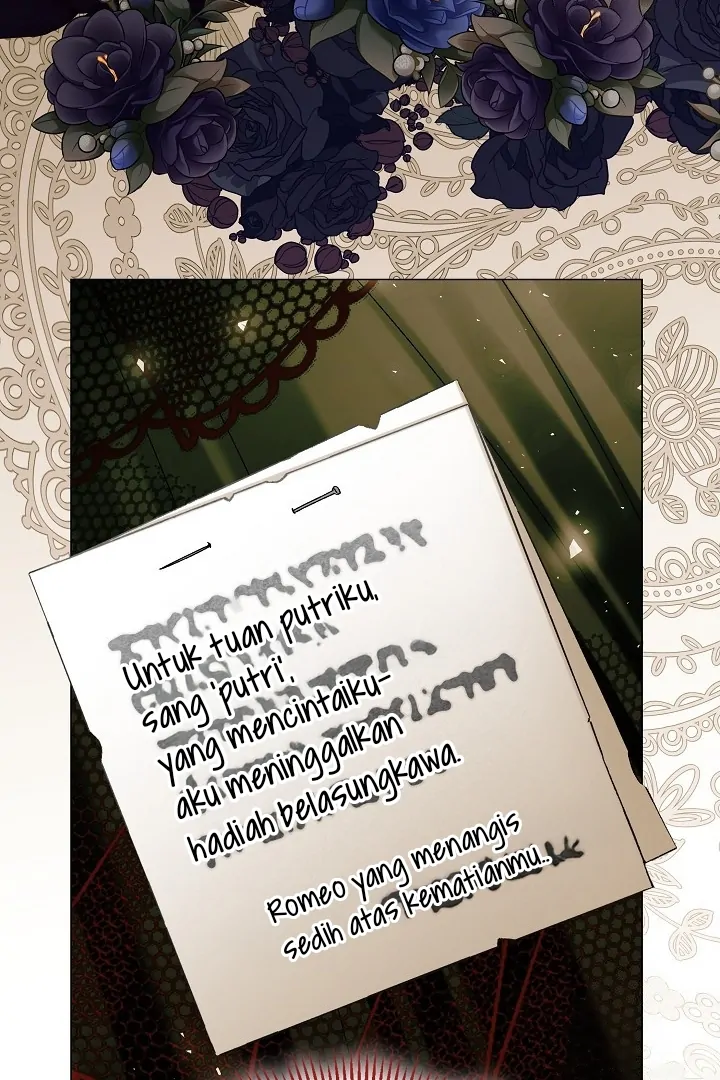 Untuk tuan putriku,
sang 'putri',
yang mencintaiku-
aku meninggalkan
hadiah belasungkawa.
Romeo yang menangis
sedih atas kematianmu..